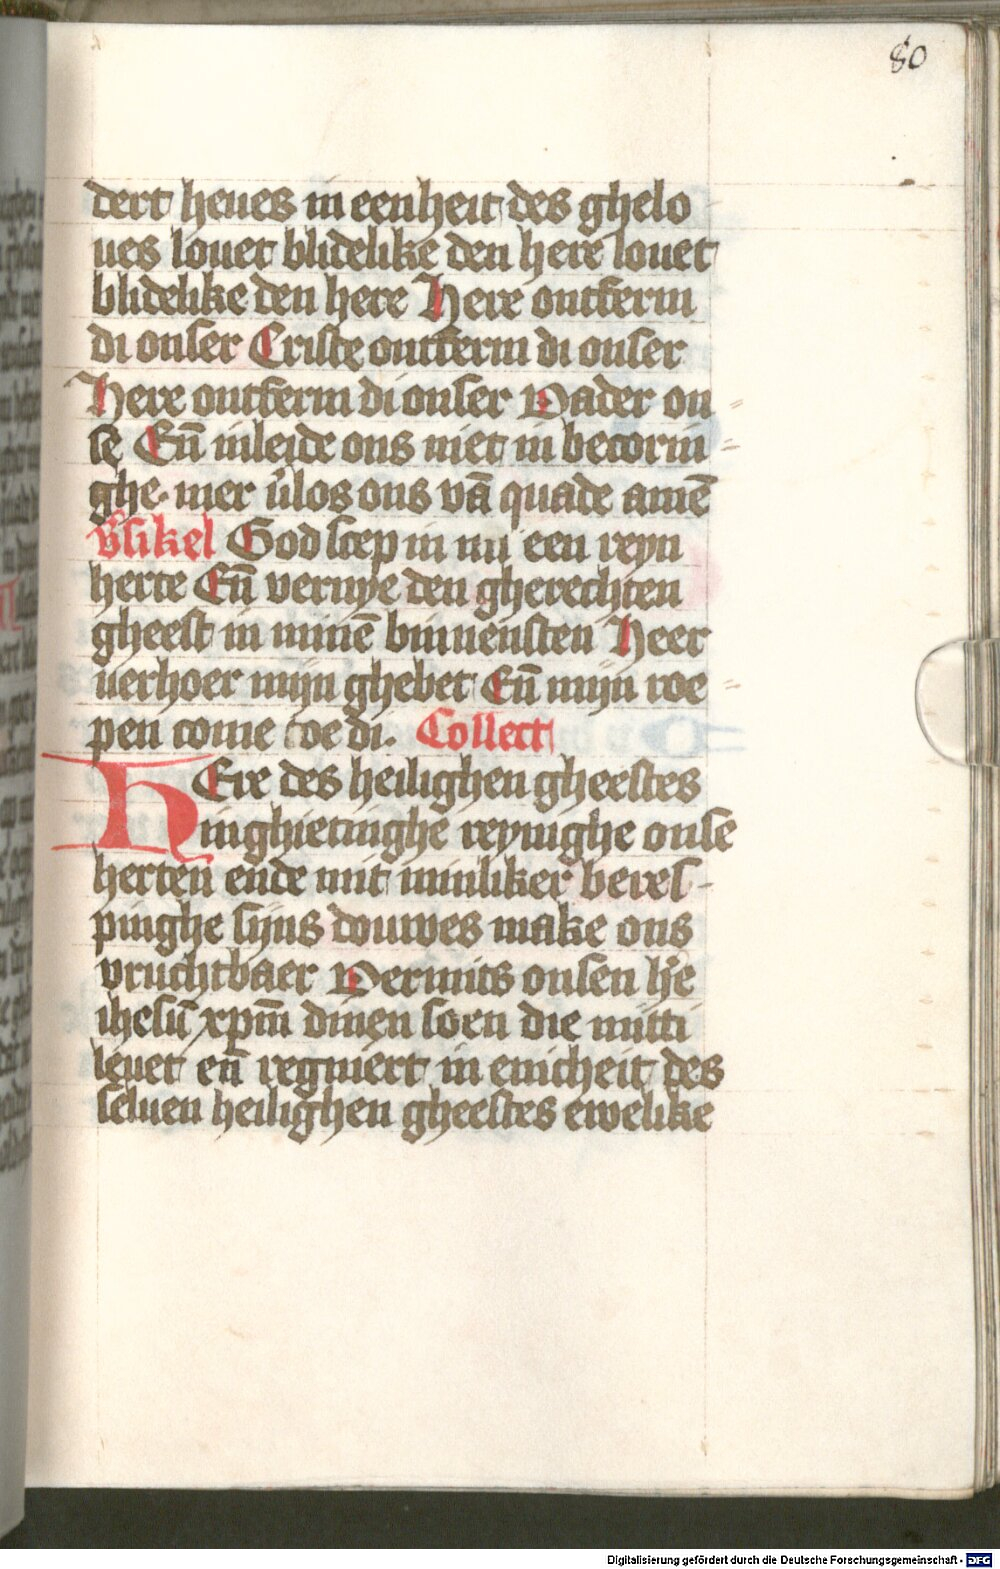 80
dert heues in eenheit des ghelo
ues louet blidelike den here louet
blidelike den here Here ontferm
di onser Criste ontferm di onser
Here ontferm di onser Vader on
se Eñ inleide ons niet in becorin
ghe. mer v̓los ons vā quade amē
V̓sikel God scep in mi een reyn
herte Eñ vernye den gherechten
gheest in minē binnensten Heer
uerhoer mijn ghebet Eñ mijn roe
pen come toe di. Collect
HEre des heilighen gheestes
inghietinghe reynighe onse
herten ende mit innliker beres
pinghe sijns douwes make ons
vruchtbaer Vermits onsen he̓
ihesū xpm̄ dinen soen die mitti
leuet eñ regniert in enicheit des
seluen heilighen gheestes ewelike
Digitalisierung gefördert durch die Deutsche Forschungsgemeinschaft - DFG